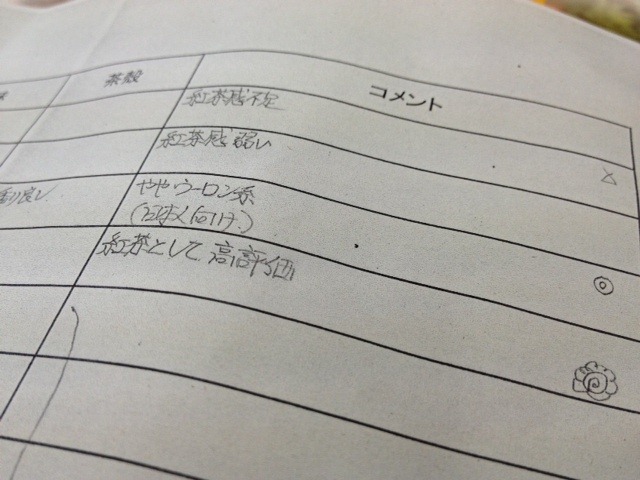 茶殻 コメント
紅茶感不足
紅茶感弱い
香り良し ややウーロン系
紅茶として高評価